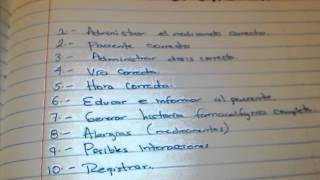 1.- Administrar el medicamento correcto
2.- Paciente correcto
3.- Administrar dosis correcta
4.- Vía Correcta.
5.- Hora Correcta.
6.- Educar e informar al paciente
7.- Generar historia farmacológica completa
8.- Alergias (medicamentos)
9.- Posibles Interacciones
10.- Registrar.